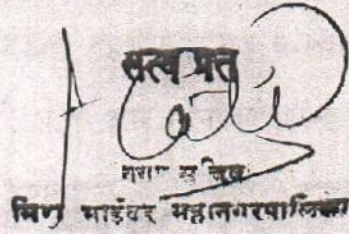 सत्य प्रत
नगर सचिव
मिरा भाईंदर महानगरपालिका